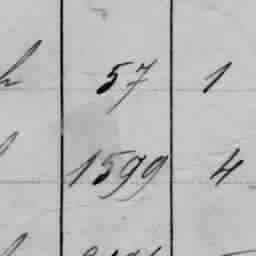 57 1
1599 4